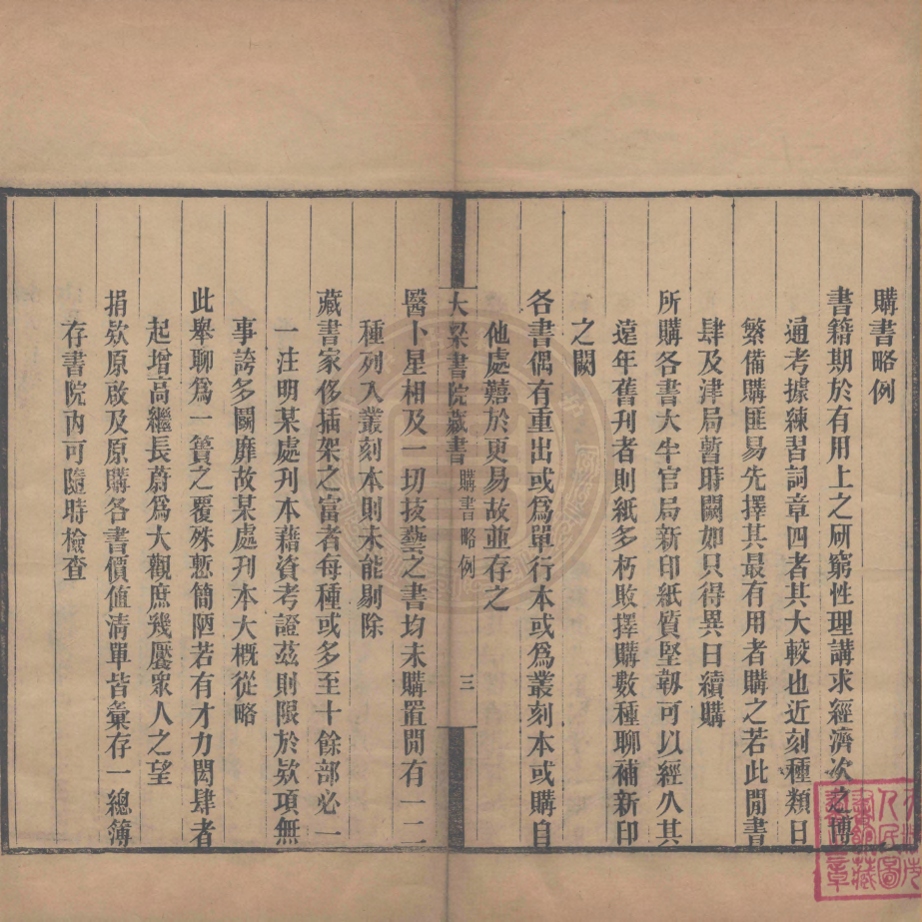 購書略例
書籍期於有用上之研窮性理講求經濟次之博
通考據練習詞章四者其大較也近刻種類日
繁備購匪易先擇其最有用者購之若此閒書
肆及津局暫時闕如只得異日續購
所購各書大半官局新印紙質堅韌可以經久其
遠年舊刊者則紙多朽敗擇購數種聊補新印
之闕
各書偶有重出或爲單行本或爲叢刻本或購自
他處囏於更易故並存之
大梁書院藏書 購書略例 三
醫卜星相及一切技藝之書均未購置閒有一二
種列入叢刻本則未能剔除
藏書家侈插架之富者每種或多至十餘部必一
一注明某處刋本藉資考證茲則限於欵項無
事誇多鬭靡故某處刋本大概從略
此舉聊爲一簣之覆殊慙簡陋若有才力閎肆者
起增高繼長蔚爲大觀庶幾饜衆人之望
捐欵原啟及原購各書價值清單皆彙存一總簿
存書院內可隨時檢查
人民圖
書館藏
章